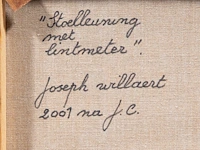 "Stoelleuning
met
lintmeter".
Joseph willaert
2001 na J.C.